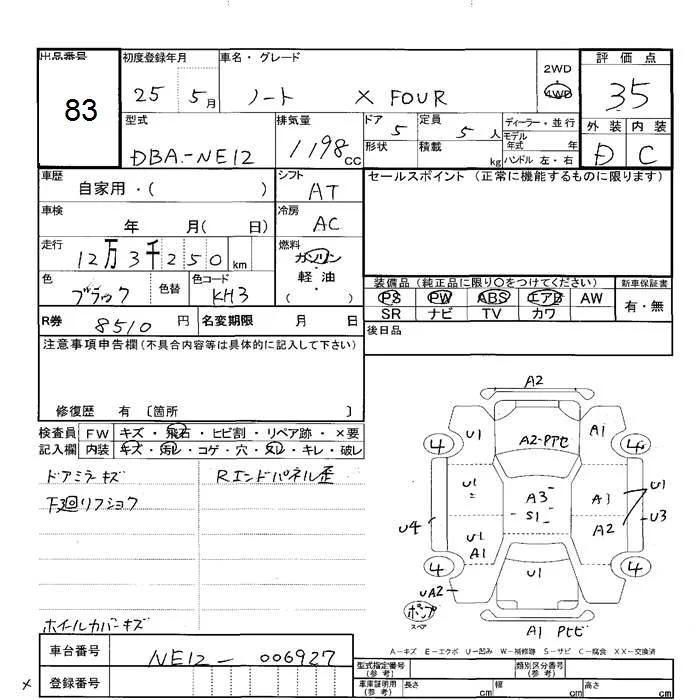 出品番号 83
初度登録年月 25 5月
車名・グレード ノート X FOUR
2WD
4WD
評価点 35
型式 DBA-NE12
排気量 1198CC
ドア 5
定員 5人
形状
積載 kg
ディーラー・並行
モデル年式 年
ハンドル 左・右
外装 D
内装 C
車歴 自家用・( )
シフト AT
セールスポイント (正常に機能するものに限ります)
車検 年 月( 日)
冷房 AC
走行 12万3千250km
燃料 ガソリン・軽油 ( )
色 ブラック 色替
色コード KH3
装備品 (純正品に限り〇をつけてください)
新車保証書 有・無
PS PW ABS エアB AW
SR ナビ TV カワ
R券 8510円
名変期限 月 日
後日品
注意事項申告欄(不具合内容等は具体的に記入して下さい)
修復歴 有 〔箇所 〕
検査員記入欄
FW キズ・飛石・ヒビ割・リペア跡・×要
内装 キズ・汚レ・コゲ・穴・スレ・キレ・破レ
ドアミラーキズ Rエンドパネル歪
下廻リフショク
ホイールカバーキズ
A2
U1 A2-Pてセ A1
4 4
U1 A3 A3 U1
S1
U4 U1 A1 A2 U3
4 4
U1
UA2
ポンプ
スペア
A1 Pてセ
A-キズ E-エクボ U-凹み W-補修跡 S-サビ C-腐食 XX-交換済
車台番号 NE12-006927
登録番号
型式指定番号(参考)
類別区分番号(参考)
車庫証明用(参考) 長さ cm 幅 cm 高さ cm
×